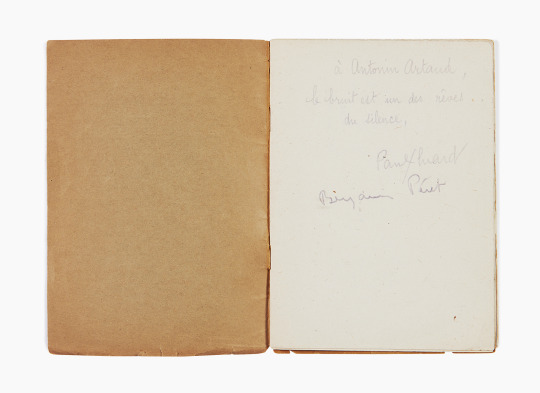 à Antonin Artaud,
le bruit est un des rêves
du silence,
Paul Eluard
Benjamin Péret